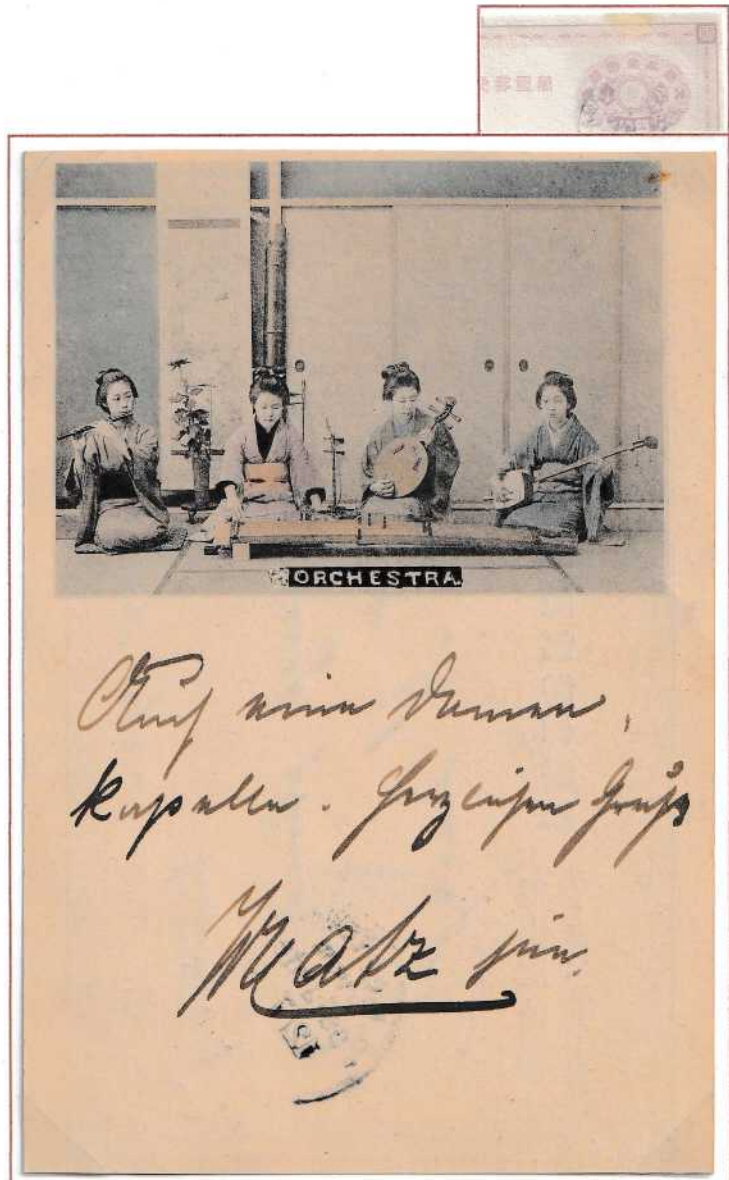 ORCHESTRA.
Auch eine Damen,
kapelle. Herzlichen Gruß
Matz jun.